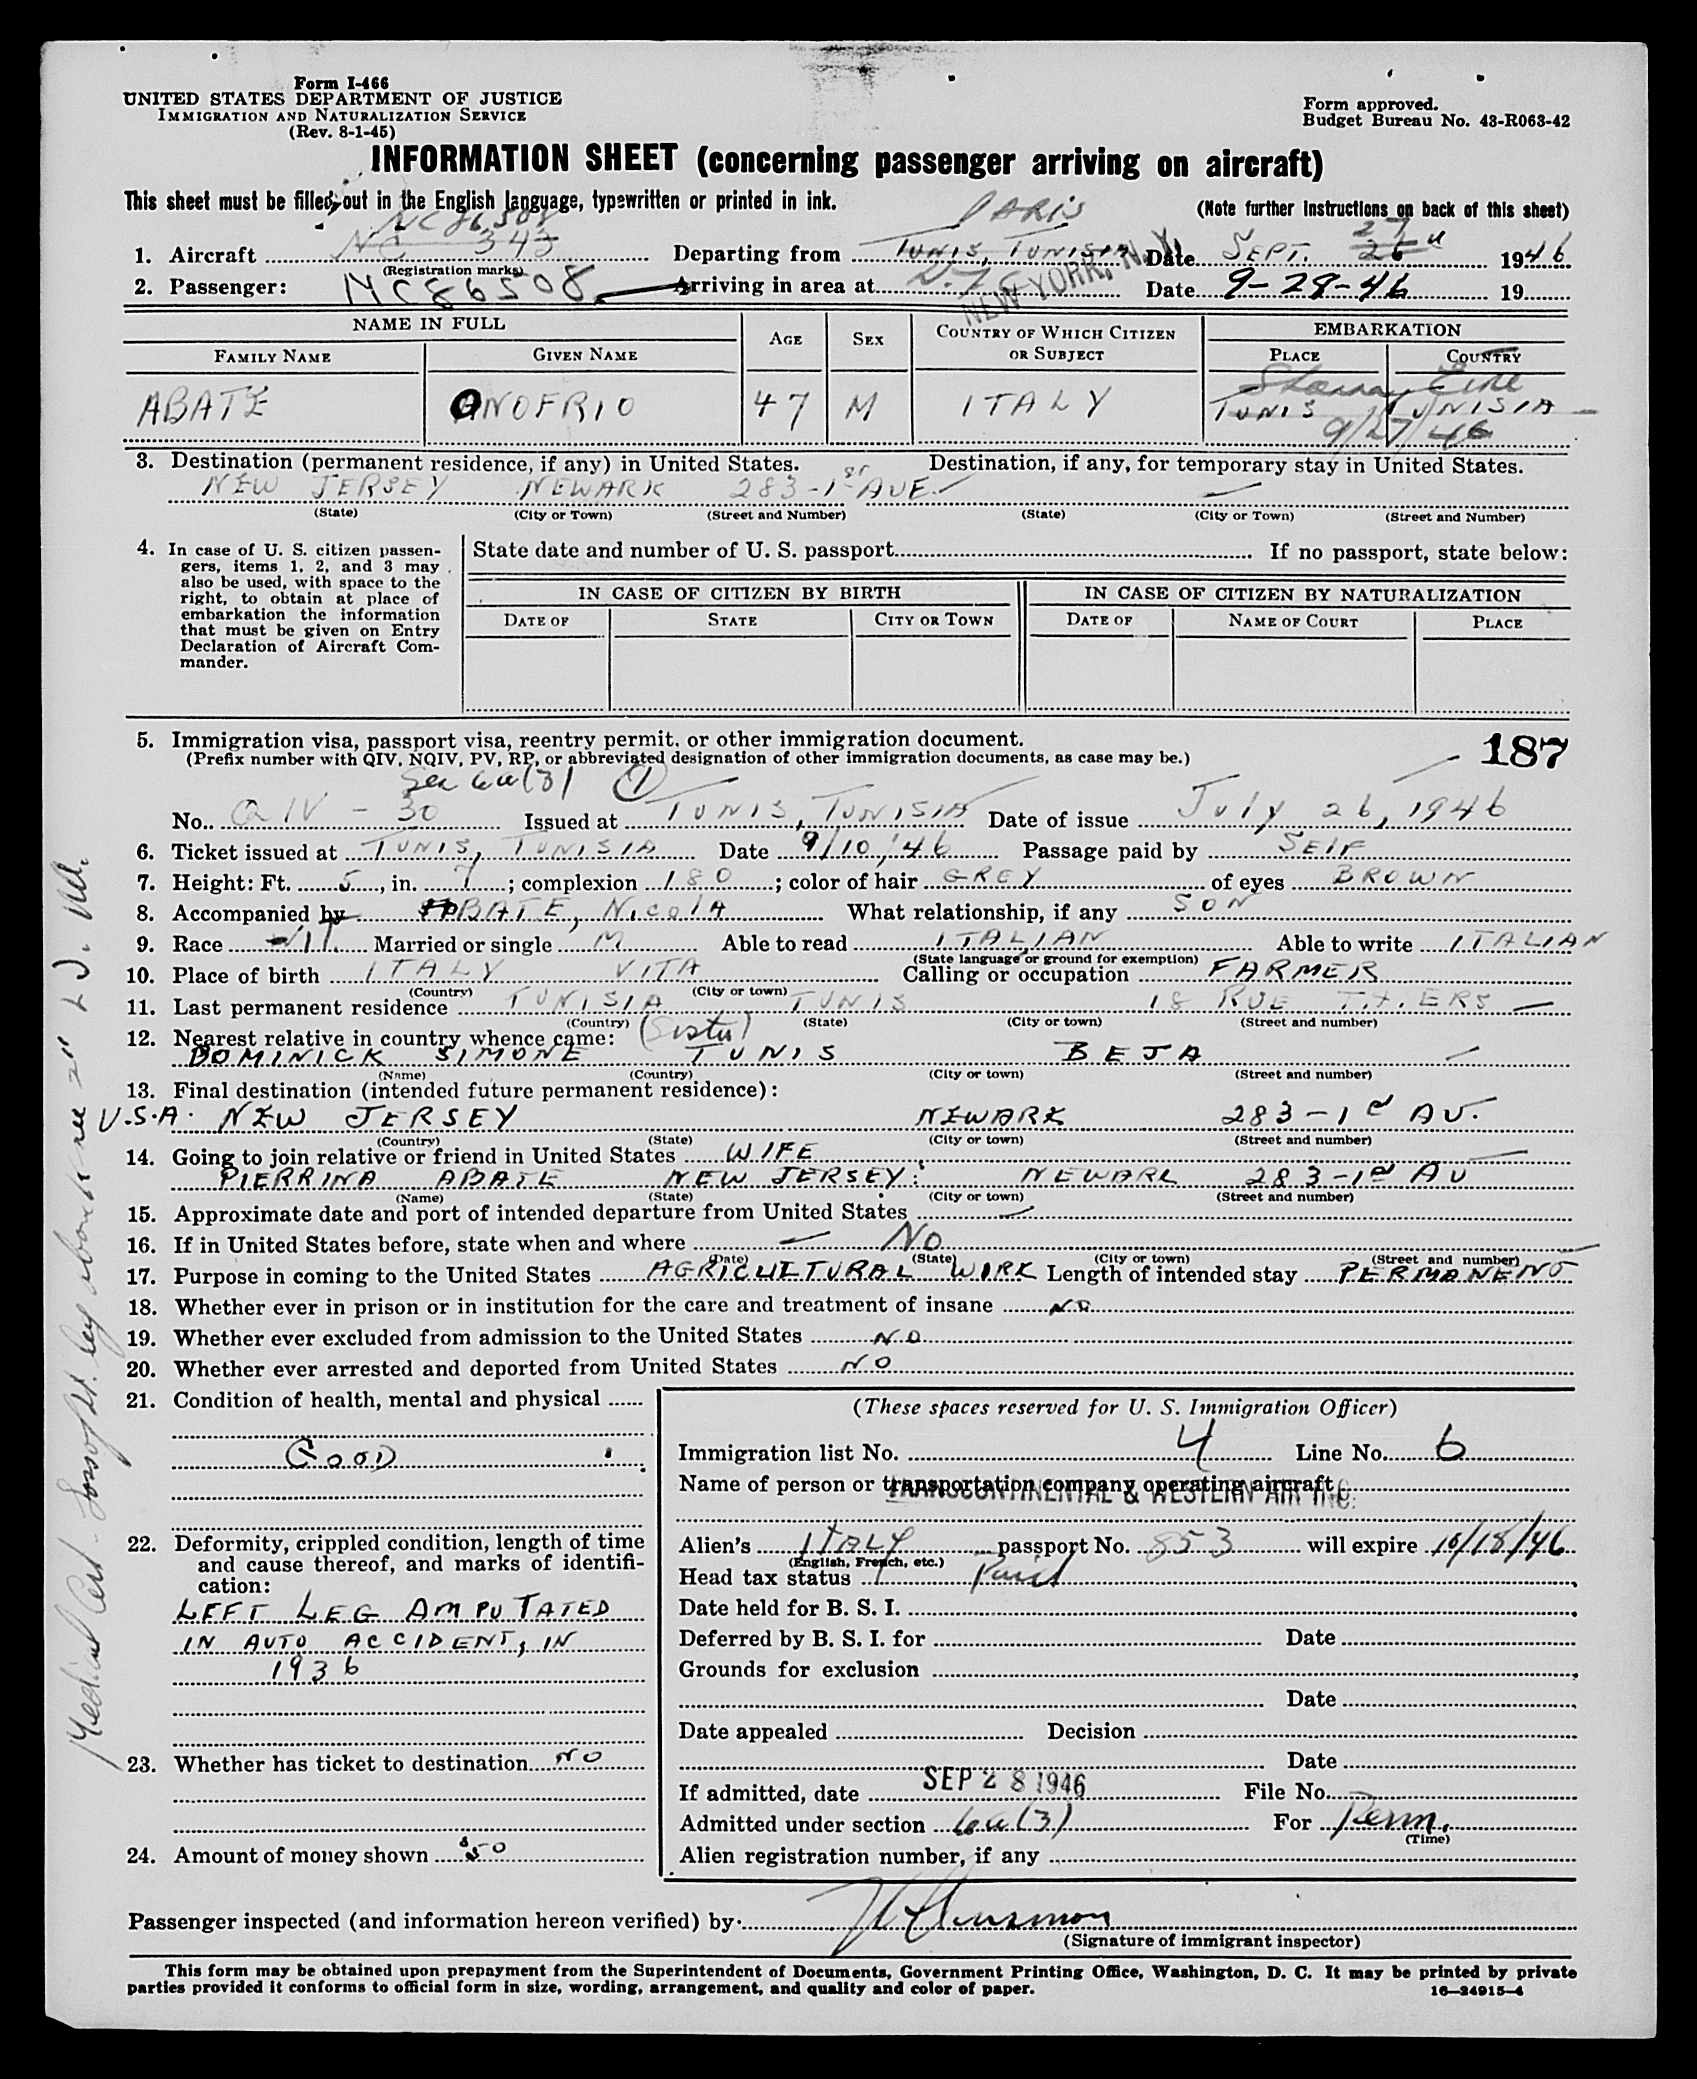 Form I-466
UNITED STATES DEPARTMENT OF JUSTICE
IMMIGRATION AND NATURALIZATION SERVICE
(Rev. 8-1-45)
Form approved.
Budget Bureau No. 43-R063-42
INFORMATION SHEET (concerning passenger arriving on aircraft)
This sheet must be filled out in the English language, typewritten or printed in ink.
(Note further instructions on back of this sheet)
NC86508 PARIS 27
1. Aircraft NC 343 Departing from TUNIS, TUNISIA Date SEPT. 26 1946
(Registration marks)
2. Passenger: NC86508 Arriving in area at N.Y. NEW YORK, N.Y. Date 9-28-46 19
NAME IN FULL AGE SEX COUNTRY OF WHICH CITIZEN OR SUBJECT EMBARKATION
FAMILY NAME GIVEN NAME PLACE COUNTRY
Eire
ABATE ONOFRIO 47 M ITALY TUNIS TUNISIA
9/27/46
3. Destination (permanent residence, if any) in United States. Destination, if any, for temporary stay in United States.
NEW JERSEY NEWARK 283-1st AVE.
(State) (City or Town) (Street and Number) (State) (City or Town) (Street and Number)
4. In case of U. S. citizen passen-
gers, items 1, 2, and 3 may
also be used, with space to the
right, to obtain at place of
embarkation the information
that must be given on Entry
Declaration of Aircraft Com-
mander.
State date and number of U. S. passport If no passport, state below:
IN CASE OF CITIZEN BY BIRTH IN CASE OF CITIZEN BY NATURALIZATION
DATE OF STATE CITY OR TOWN DATE OF NAME OF COURT PLACE
5. Immigration visa, passport visa, reentry permit, or other immigration document. 187
(Prefix number with QIV, NQIV, PV, RP, or abbreviated designation of other immigration documents, as case may be.)
Sec 6a(3) 1
No. QIV - 30 Issued at TUNIS, TUNISIA Date of issue July 26, 1946
6. Ticket issued at TUNIS, TUNISIA Date 9/10/46 Passage paid by SELF
7. Height: Ft. 5, in. 7; complexion 180; color of hair GREY of eyes BROWN
8. Accompanied by ABATE, NICOLA What relationship, if any SON
9. Race IT. Married or single M Able to read ITALIAN Able to write ITALIAN
(State language or ground for exemption)
10. Place of birth ITALY VITA Calling or occupation FARMER
(Country) (City or town)
11. Last permanent residence TUNISIA TUNIS 18 RUE ERS
(Country) (State) (City or town) (Street and number)
12. Nearest relative in country whence came: (Sister)
DOMINICK SIMONE TUNIS BEJA
(Name) (Country) (City or town) (Street and number)
13. Final destination (intended future permanent residence):
U.S.A. NEW JERSEY NEWARK 283-1st AV.
(Country) (State) (City or town) (Street and number)
14. Going to join relative or friend in United States WIFE
PIERRINA ABATE NEW JERSEY NEWARK 283-1st AV
(Name) (State) (City or town) (Street and number)
15. Approximate date and port of intended departure from United States
16. If in United States before, state when and where No
(Date) (State) (City or town) (Street and number)
17. Purpose in coming to the United States AGRICULTURAL WORK Length of intended stay PERMANENT
18. Whether ever in prison or in institution for the care and treatment of insane NO
19. Whether ever excluded from admission to the United States NO
20. Whether ever arrested and deported from United States NO
21. Condition of health, mental and physical
GOOD
22. Deformity, crippled condition, length of time
and cause thereof, and marks of identifi-
cation:
LEFT LEG AMPUTATED
IN AUTO ACCIDENT, IN
1936
23. Whether has ticket to destination NO
24. Amount of money shown $50
(These spaces reserved for U. S. Immigration Officer)
Immigration list No. 4 Line No. 6
Name of person or transportation company operating aircraft
TRANSCONTINENTAL & WESTERN AIR INC.
Alien's ITALY passport No. 853 will expire 10/18/46
(English, French, etc.)
Head tax status Paid
Date held for B. S. I.
Deferred by B. S. I. for Date
Grounds for exclusion
Date
Date appealed Decision
Date
If admitted, date SEP 28 1946 File No.
Admitted under section 6a(3) For Perm.
(Time)
Alien registration number, if any
Passenger inspected (and information hereon verified) by
(Signature of immigrant inspector)
This form may be obtained upon prepayment from the Superintendent of Documents, Government Printing Office, Washington, D. C. It may be printed by private
parties provided it conforms to official form in size, wording, arrangement, and quality and color of paper.
16-24915-4
Medical Cert. Loss of lt. leg above knee